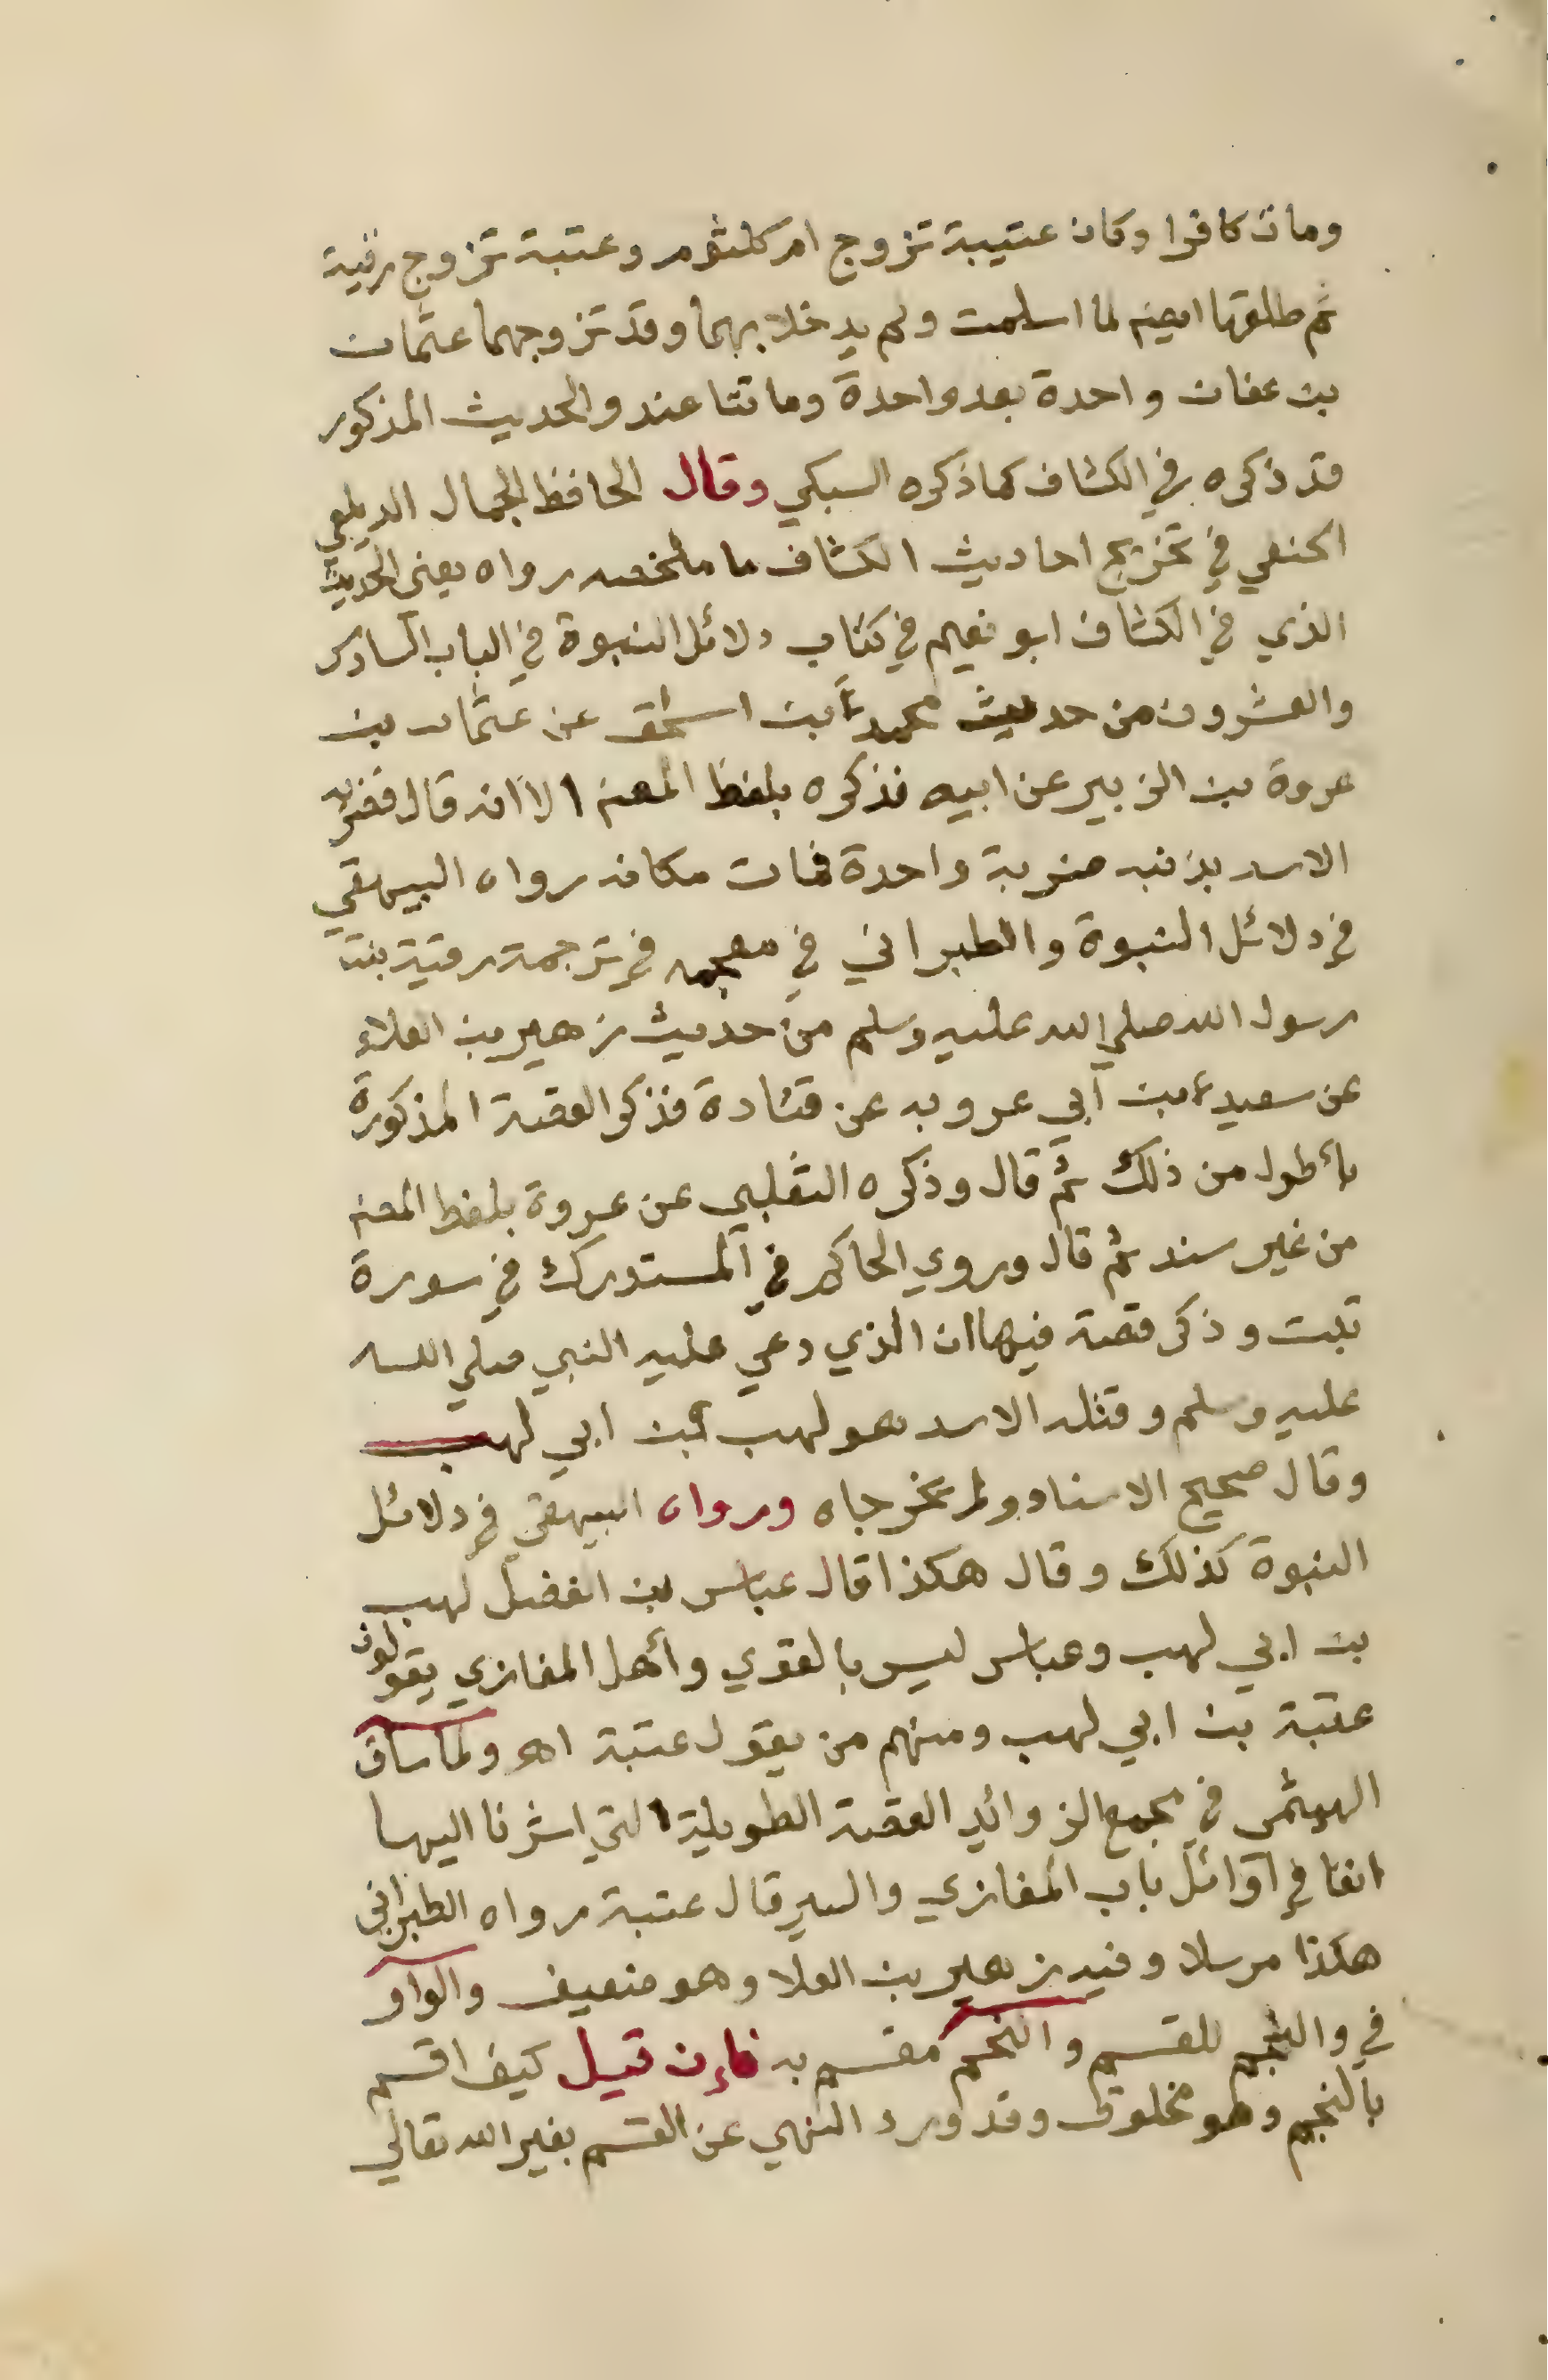 ومات كافرا وكان عتيبة تزوج ام كلثوم وعتبة تزوج رقية
ثم طلقها ايضا لما اسلمت ولم يدخلا بهما وقد تزوجهما عثمان
بن عفان واحدة بعد واحدة وماتتا عنده والحديث المذكور
قد ذكره في الكشاف كما ذكره السبكي وقال الحافظ الجمال الديلعي
الحنفي في تخريج احاديث الكشاف ما ملخصه رواه يعنى الحديث
الذي في الكشاف ابو نعيم في كتاب دلائل النبوة في الباب السادس
والعشرون من حديث محمد بن اسحق عن عثمان بن
عروة بن الزبير عن ابيه فذكره بلفظ المصنف الا انه قال فضربه
الاسد بذنبه ضربة واحدة فمات مكانه رواه البيهقي
في دلائل النبوة والطبراني في معجمه في ترجمة رقية بنت
رسول الله صلي الله عليه وسلم من حديث زهير بن العلاء
عن سعيد بن أبي عروبه عن قتادة فذكر القصة المذكورة
بأطول من ذلك ثم قال وذكره الثعلبي عن عروة بلفظ المصنف
من غير سند ثم قال وروي الحاكم في المستدرك في سورة
تبت وذكر قصة فيها ان الذي دعي عليه النبي صلي الله
عليه وسلم وقتله الاسد هو لهب بن ابي لهب
وقال صحيح الاسناد ولم يخرجاه ورواه البيهقي في دلائل
النبوة كذلك وقال هكذا قال عباس بن الفضل لهب
بن ابي لهب وعباس ليس بالقوي وأهل المغازي يقولون
عتبة بن ابي لهب ومنهم من يقول عتبة اهـ ولما ساق
الهيثمي في مجمع الزوائد القصة الطويلة التي اشرنا اليها
انفا في أوائل باب المغازي والسير قال عتبة رواه الطبراني
هكذا مرسلا وفيه زهير بن العلا وهو ضعيف والواو
في والنجم للقسم والنجم مقسم به فإن قيل كيف اقسم
بالنجم وهو مخلوق وقد ورد النهي عن القسم بغير الله تعالي